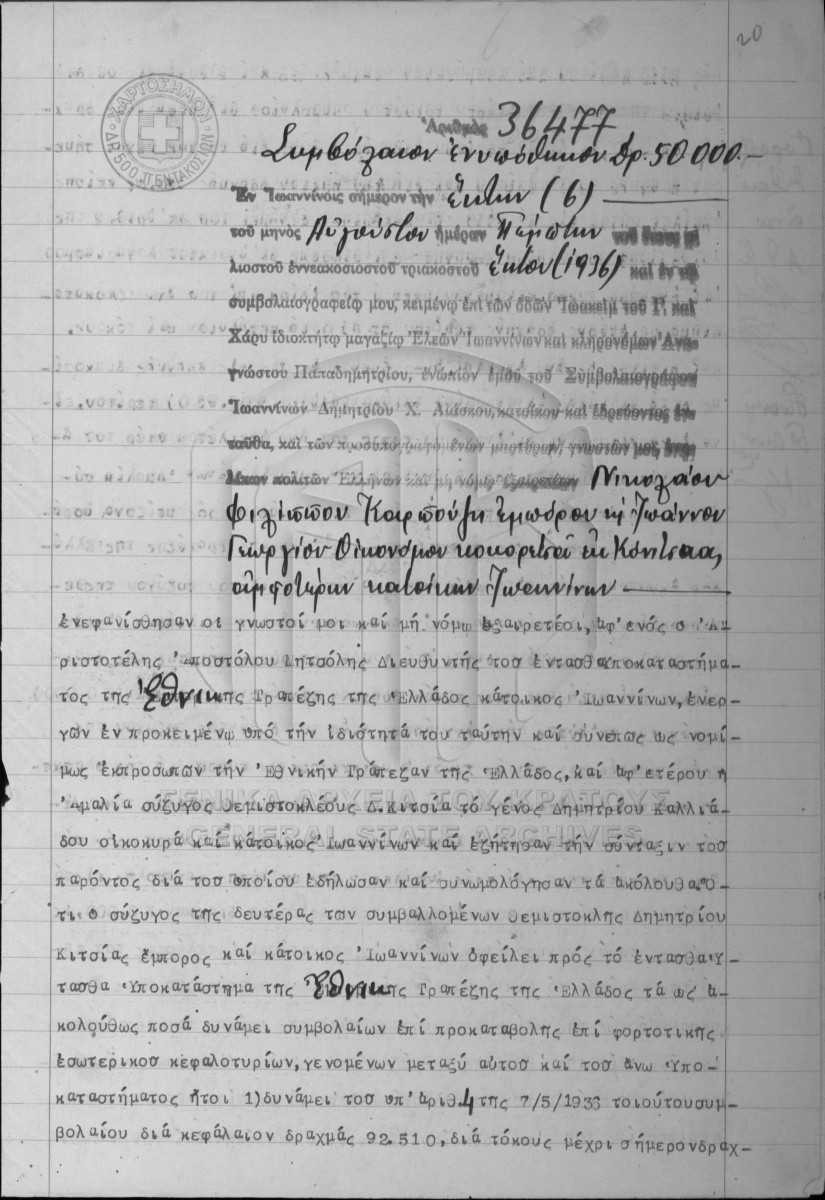 20
ΧΑΡΤΟΣΗΜΟΝ
ΔΡ. 500 ΠΕΝΤΑΚΟΣΙΩΝ
Ἀριθμός 36477
Συμβόλαιον ἐνυπόθηκον Δρ. 50.000.—
Ἐν Ἰωαννίνοις σήμερον τὴν ἕκτην (6)
τοῦ μηνὸς Αὐγούστου ἡμέραν Πέμπτην τοῦ ἔτους χι
λιοστοῦ ἐννεακοσιοστοῦ τριακοστοῦ ἕκτου (1936) καὶ ἐν τῷ
συμβολαιογραφείῳ μου, κειμένῳ ἐπὶ τῶν ὁδῶν Ἰωακεὶμ τοῦ Γ. καὶ
Χάρυ ἰδιοκτήτῳ μαγαζίῳ Ἐλεῶν Ἰωαννίνων καὶ κληρονόμων Ἀνα-
γνώστου Παπαδημητρίου, ἐνώπιον ἐμοῦ τοῦ Συμβολαιογράφου
Ἰωαννίνων Δημητρίου Χ. Λιάσκου, κατοίκου καὶ ἑδρεύοντος ἐν-
ταῦθα, καὶ τῶν προσυπογραφομένων μαρτύρων, γνωστῶν μοι, ἐνη-
λίκων πολιτῶν Ἑλλήνων καὶ μὴ νόμῳ ἐξαιρετέων Νικολάου
Φιλίππου Καρπούζη ἐμπόρου κ Ἰωάννου
Γεωργίου Οἰκονόμου ἐκ Κονίτσας,
ἀμφοτέρων κατοίκων Ἰωαννίνων
ἐνεφανίσθησαν οι γνωστοί μοι καί μή νόμω ἐξαιρετέοι, ἀφ'ενός ο 'Α-
ριστοτέλης 'Αποστόλου Μητσόλης Διευθυντής τοσ ἐντασθαΥποκαταστήμα-
τος της Ἐθνικης Τραπέζης της Ἑλλάδος κάτοικος 'Ιωαννίνων, ἐνερ-
γῶν ἐν προκειμένῳ υπό τήν ἰδιότητά του ταύτην καί συνεπως ως νομί-
μως ἐκπροσωπῶν τήν 'Εθνικήν Τράπεζαν της Ἑλλάδος, καί ἀφ'ετέρου η
'Αμαλία σύζυγος Θεμιστοκλέους Δ.Κιτσία τό γένος Δημητρίου Καλλιά-
δου οικοκυρά καί κάτοικος 'Ιωαννίνων καί ἐζήτησαν τήν σύνταξιν τοσ
παρόντος διά τοσ οποίου ἐδήλωσαν καί συνωμολόγησαν τά ἀκόλουθα.Ο-
τι ο σύζυγος της δευτέρας των συμβαλλομένων Θεμιστοκλης Δημητρίου
Κιτσίας ἔμπορος καί κάτοικος 'Ιωαννίνων ὀφείλει πρός τό ἐντασθαΥ-
τασθα Υποκατάστημα της Ἐθνικης Τραπέζης της Ἑλλάδος τά ως ἀ-
κολούθως ποσά δυνάμει συμβολαίων ἐπί προκαταβολης ἐπί φορτοτικης
ἐσωτερικοσ κεφαλοτυρίων, γενομένων μεταξύ αὐτοσ καί τοσ ἄνω Υπο-
καταστήματος ἤτοι 1)δυνάμει τοσ υπ'ἀριθ.4 της 7/5/1933 τοιούτουσυμ-
βολαίου διά κεφάλαιον δραχμάς 92.510, διά τόκους μέχρι σήμερονδραχ-
ΓΕΝΙΚΑ ΑΡΧΕΙΑ ΤΟΥ ΚΡΑΤΟΥΣ
GENERAL STATE ARCHIVES